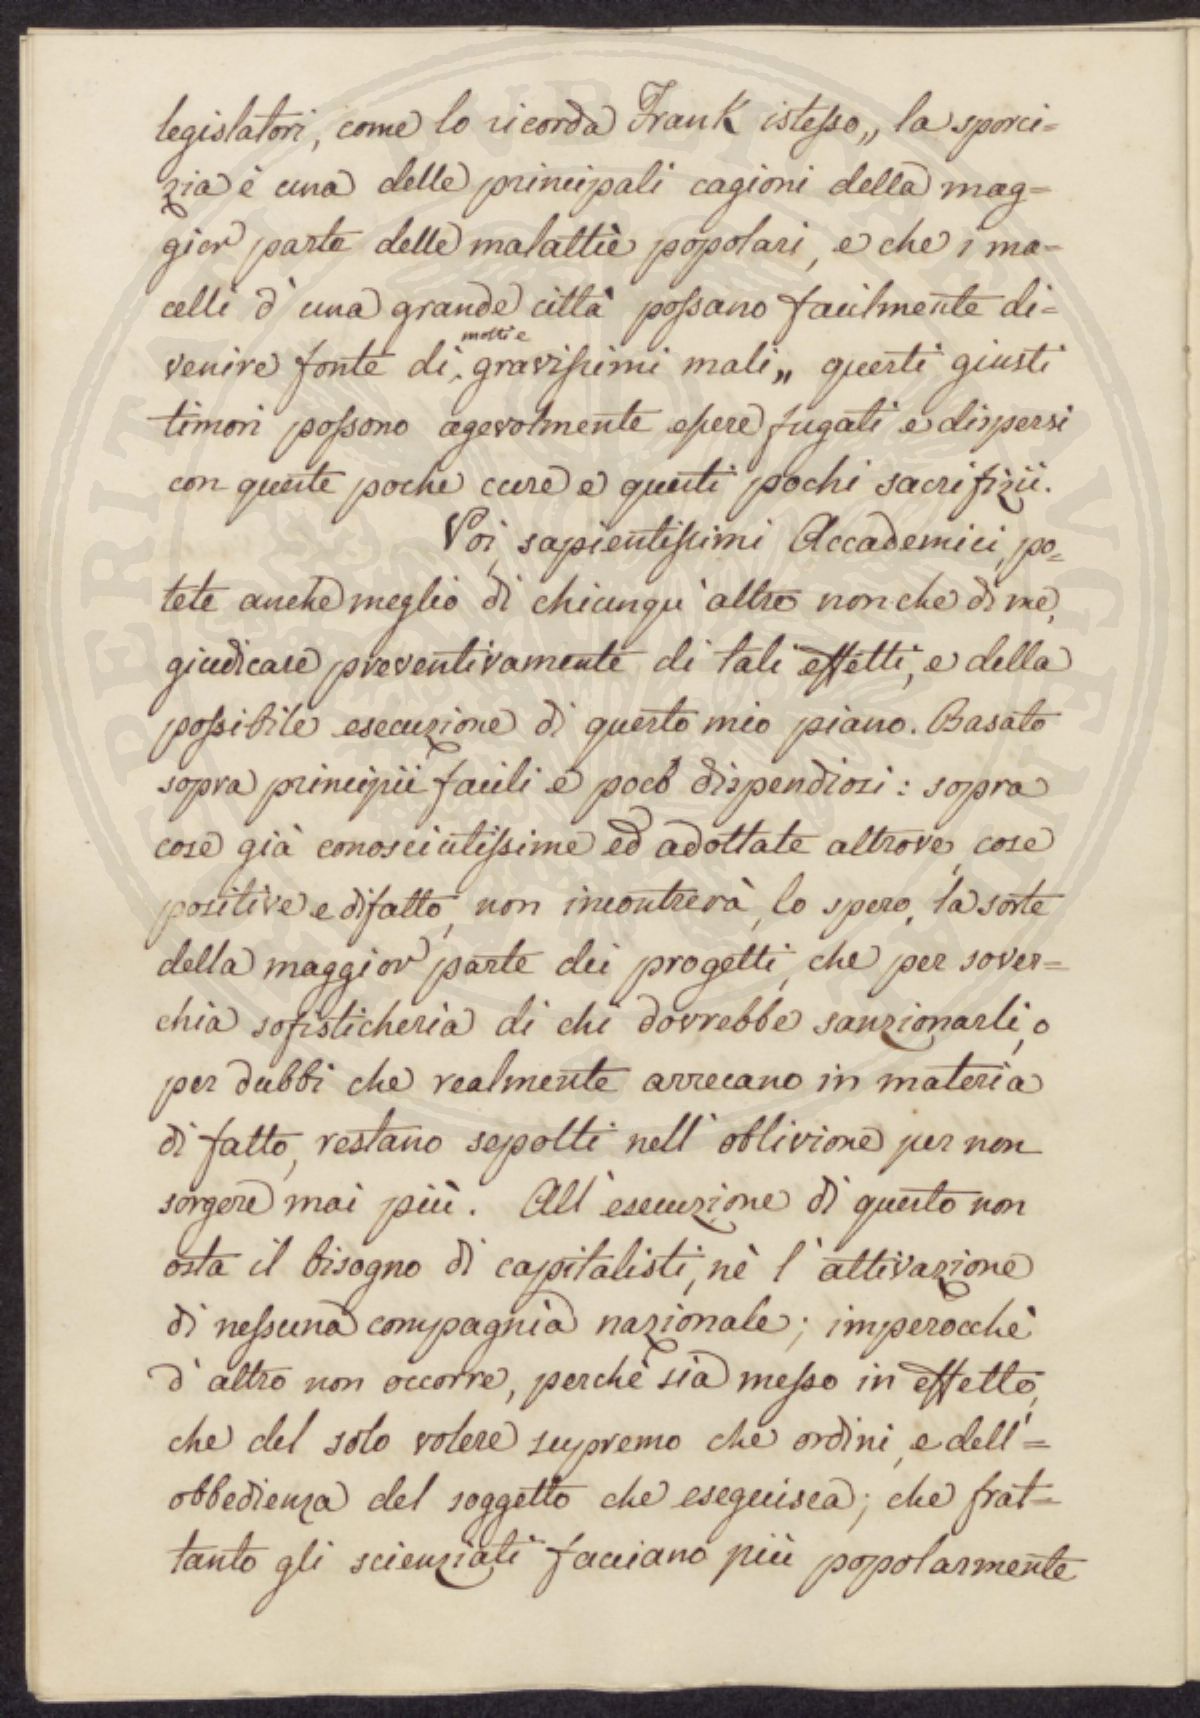 legislatori, come lo ricorda Frank istesso „ la sporci=
zia è una delle principali cagioni della mag=
gior parte delle malattie popolari, e che i ma=
celli d'una grande città possano facilmente di=
venire fonte di molti e gravissimi mali „ questi giusti
timori possono agevolmente essere fugati e dispersi
con queste poche cure e questi pochi sacrifizii.
Voi, sapientissimi Accademici, po=
tete anche meglio di chiunqu'altro non che di me,
giudicare preventivamente di tali effetti, e della
possibile esecuzione di questo mio piano. Basato
sopra principii facili e poco dispendiosi: sopra
cose già conosciutissime ed adottate altrove, cose
positive e di fatto, non incontrerà, lo spero, la sorte
della maggior parte dei progetti, che per sover=
chia sofisticheria di chi dovrebbe sanzionarli, o
per dubbi che realmente arrecano in materia
di fatto, restano sepolti nell'oblivione per non
sorgere mai più. All'esecuzione di questo non
osta il bisogno di capitalisti, nè l'attivazione
di nessuna compagnia nazionale; imperocchè
d'altro non occorre, perchè sia messo in effetto,
che del solo volere supremo che ordini, e dell'=
obbedienza del soggetto che eseguisca; che frat=
tanto gli scienziati facciano più popolarmente